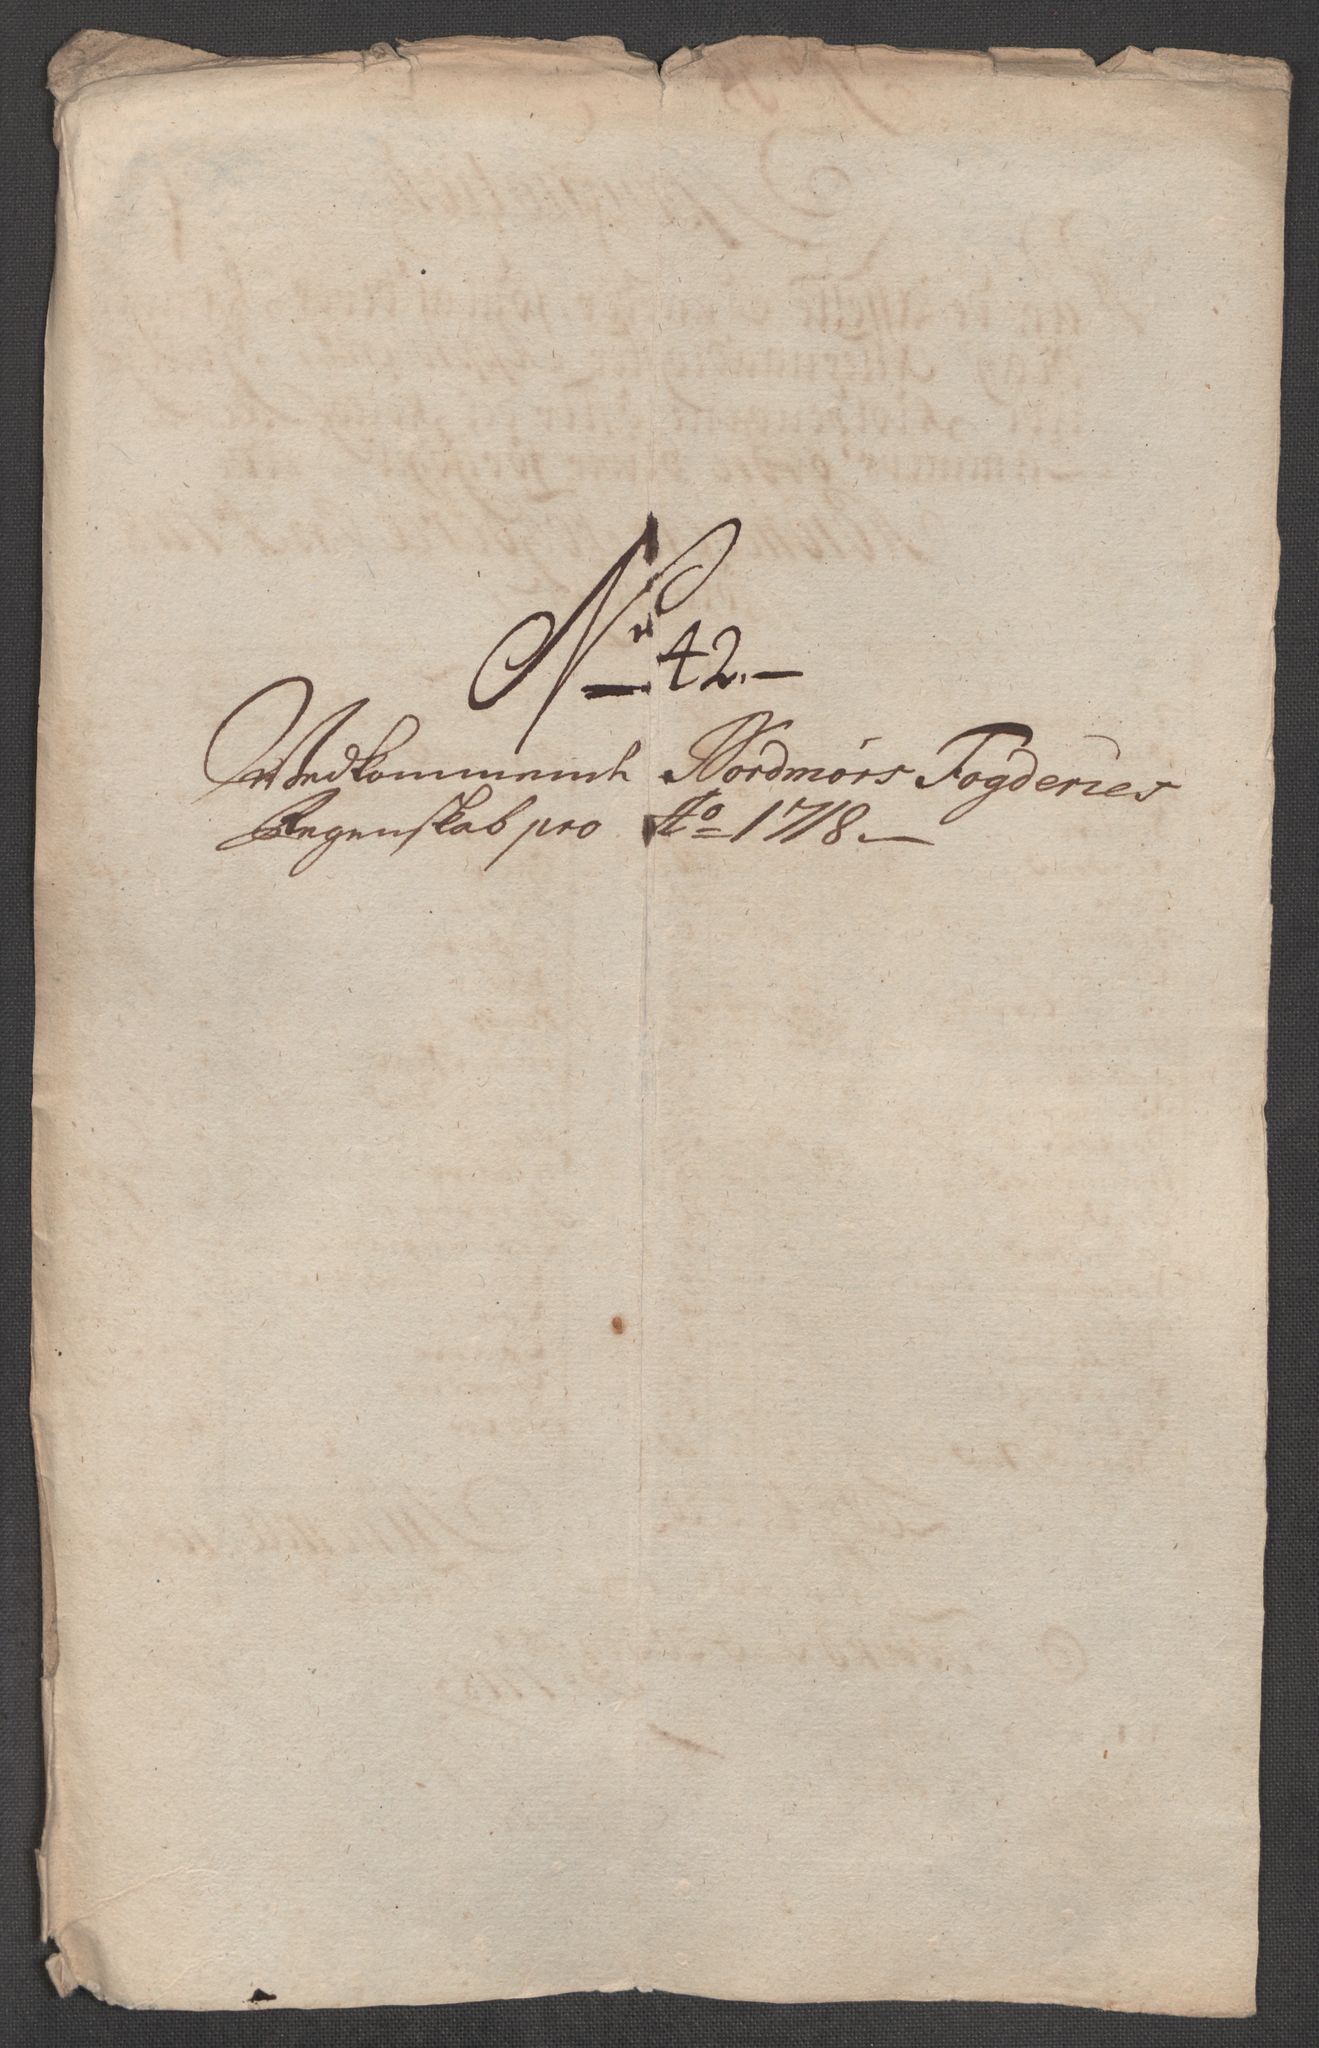 No 42.
Vedkommende Nordmørs Fogderies
Regenskab pro Ao 1718.